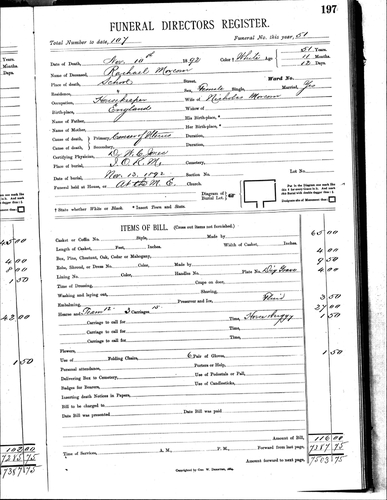 197
FUNERAL DIRECTORS REGISTER.
Total Number to date, 197 Funeral No. this year, 51
Date of Death, Nov 10th 1892 Color† White Age 51 Years. 11 Months 12 Days.
Name of Deceased, Rachael Morcom Ward No.
School Street.
Residence, * Sex, Female Single, Married, Yes
Occupation, Housekeeper Wife of Nicholas Morcom
Birth-place, England Widow of
Name of Father, His Birth-place, *
Name of Mother, Her Birth-place, *
Cause of death, Primary, Cancer of Uterus
Cause of death, Secondary, Duration,
Certifying Physician, Dr. W. C. Jones
Place of burial, I.O.R.M. Cemetery,
Date of burial, Nov. 13, 1892 Section No. Lot No.
Funeral held at House, or At the M. E. Church.
Diagram of Burial Lot.
† State whether White or Black. * Insert Town and State.
ITEMS OF BILL. (Cross out items not furnished.)
Casket or Coffin No. Style, Made by 65 00
Size, Feet, Inches. Width of Casket, Inches.
Box, Pine, Chestnut, Oak, Cedar or Mahogany, 4 00
Robe, Shroud, or Dress No. Color, Made by 9 50
Lining No. Color, Handles No. Plate No. Dig Grave 4 00
Time of Dressing, Crape on door,
Washing and laying out, Shaving,
Embalming, Preserver and Ice, 3 50
Hearse and Team 12. 3 Carriages 15. 27 00
Carriage to call for Time, Horse buggy 1 50
Carriage to call for Time,
Carriage to call for Time,
Flowers,
Use of Folding Chairs, 6 Pair of Gloves, 1 50
Personal attendance, Porters or Help,
Delivering Box to Cemetery, Use of Pedestals or Pall,
Badges for Bearers, Use of Candlesticks,
Inserting death Notices in Papers,
Bill to be charged to
Date Bill was presented Date Bill was paid
Amount of Bill, 116 00
Time of Services, A. M., P. M., Forward from last page, 7387 75
Amount forward to next page, 7503 75